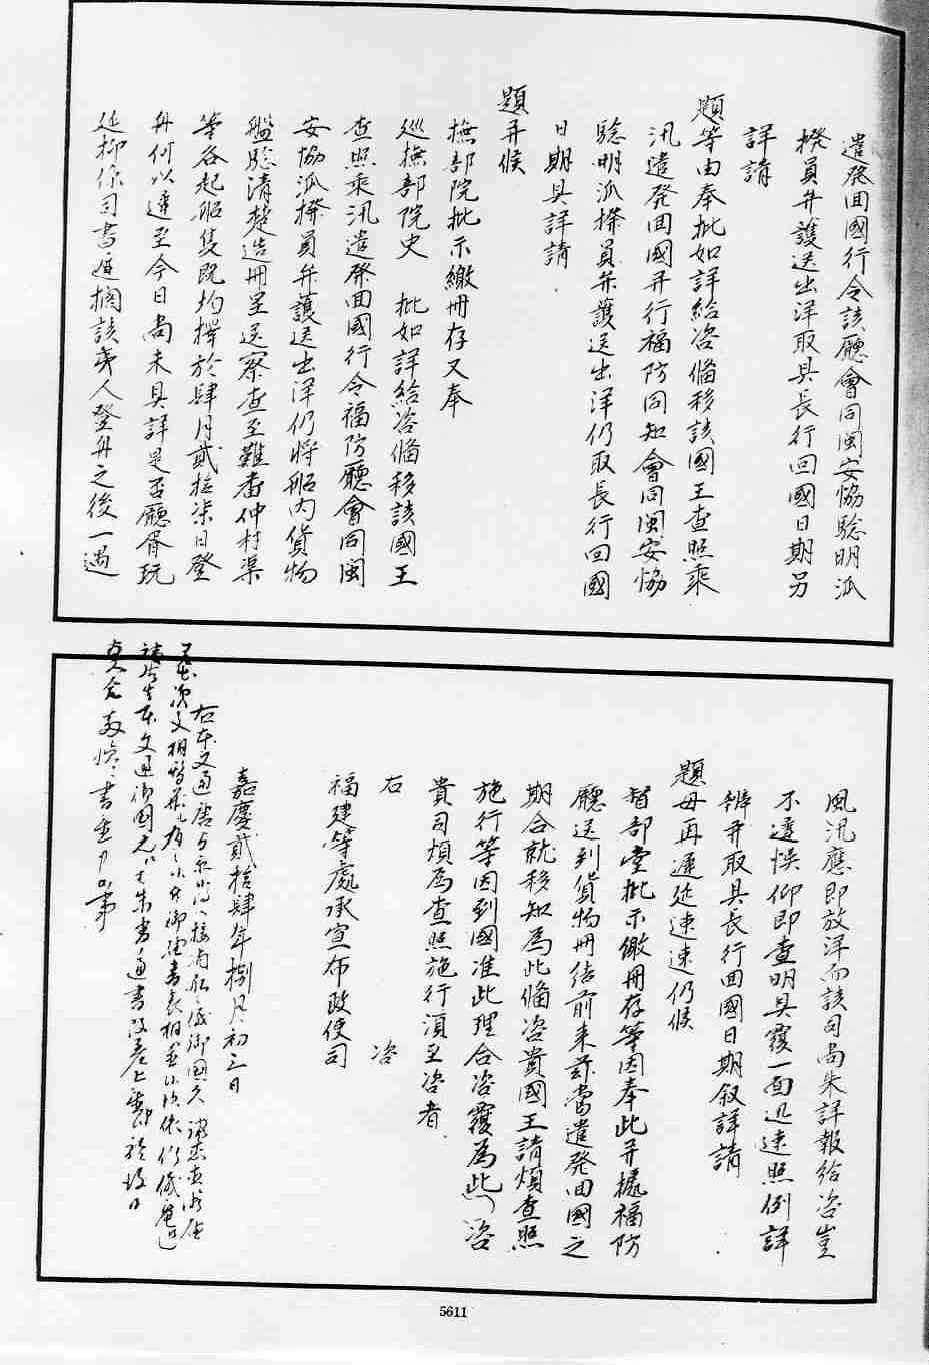 遣発囬國行令該廳會同閩安協騐明派
撥員弁護送出洋取具長行回國日期另
詳請
題等由奉批如詳給咨俻移該國王查照乘
汛遣発囬國并行福防同知會同閩安協
騐明派撥員弁護送出洋仍取長行回國
日期具詳請
題并候
撫部院批示繳冊存又奉
巡撫部院史　批如詳給咨俻移該國王
查照乘汛遣発囬國行令福防廳會同閩
安協派撥員弁護送出洋仍将船内貨物
艦騐清楚造冊呈送察查至難番仲村渠
等各起船隻既均擇於肆月貳拾柒日登
舟何以遲至今日尚未具詳是否廳胥玩
延抑係司書遲擱該夷人登舟之後一遇
風汛應即放洋而該司尚未詳報給咨豈
不遲悞仰即查明具覆一面迅速照例詳
辦并取具長行囬國日期叙詳請
題毋再遲延速速仍候
督部堂批示繳冊存等因奉此并據福防
廳送到貨物冊结前来茲當遣発囬國之
期合就移知為此俻咨貴國王請煩查照
施行等因到國准此理合咨覆為此咨
貴司煩為查照施行須至咨者
右　咨
福建等處承宣布政使司
嘉慶貳拾肆年捌月初三日
5611